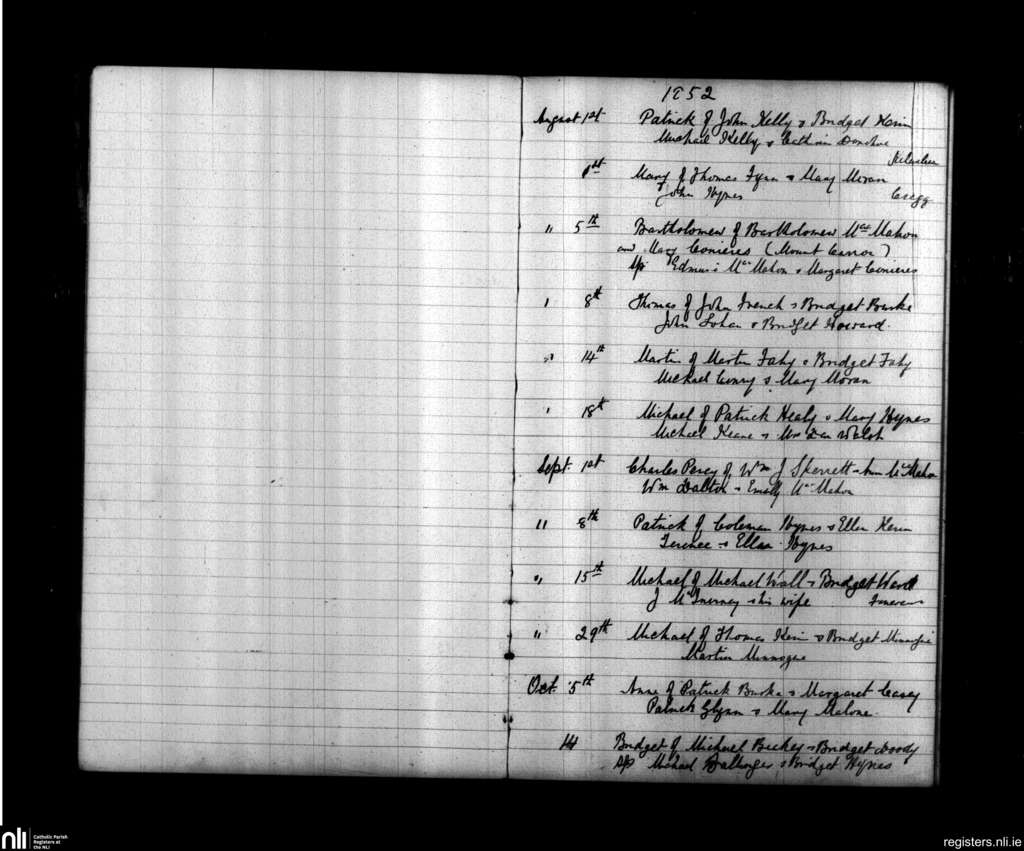 1852
August 1st Patrick of John Kelly & Bridget Kerin
Michael Kelly & Cathrin Donohue
Mary of Thomas Flynn & Mary Moran
John Hynes Cregg
" 5th Bartholomew of Bartholomew McMahon
and Mary Comieres (Mount Carron)
Sp. Edmund McMahon & Margaret Comieres
" 8th Thomas of John French & Bridget Burke
John Lohan & Bridget Howard.
" 14th Martin of Martin Fahy & Bridget Fahy
Michael Conry & Mary Moran
" 18th Michael of Patrick Healy & Mary Hynes
Michael Keane & Mrs Walsh
Sept. 1st Charles Percy of Wm J Skerrett & Ann McMahon
Wm Dalton & Emily McMahon
" 8th Patrick of Coleman Hynes & Ellen Kerin
Terence & Ellen Hynes
" 15th Michael of Michael Wall & Bridget Ward
J McInerney & his wife
" 29th Michael of Thomas Kerin & Bridget Minnogue
Martin Minnogue
Oct. 5th Anne of Patrick Burke & Margaret Casey
Patrick Glynn & Mary Malone.
14 Bridget of Michael Buckley & Bridget Doody
Sp Michael & Bridget Hynes
nli
Catholic Parish
Registers at
the NLI
registers.nli.ie